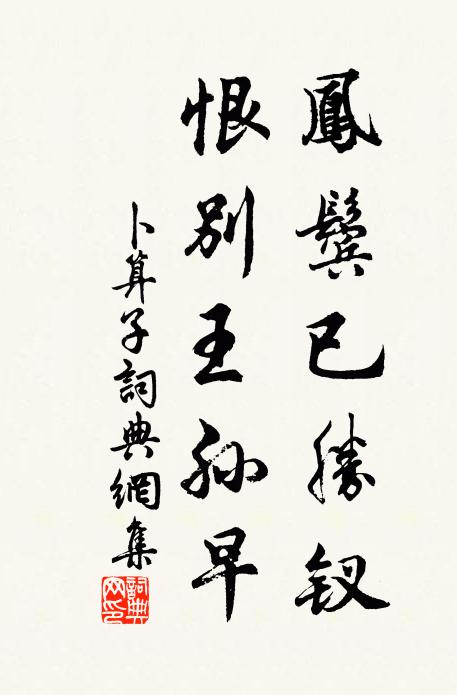 鳳鬢已勝釵
恨別王孫早
卜算子詞典網集
詞典網印